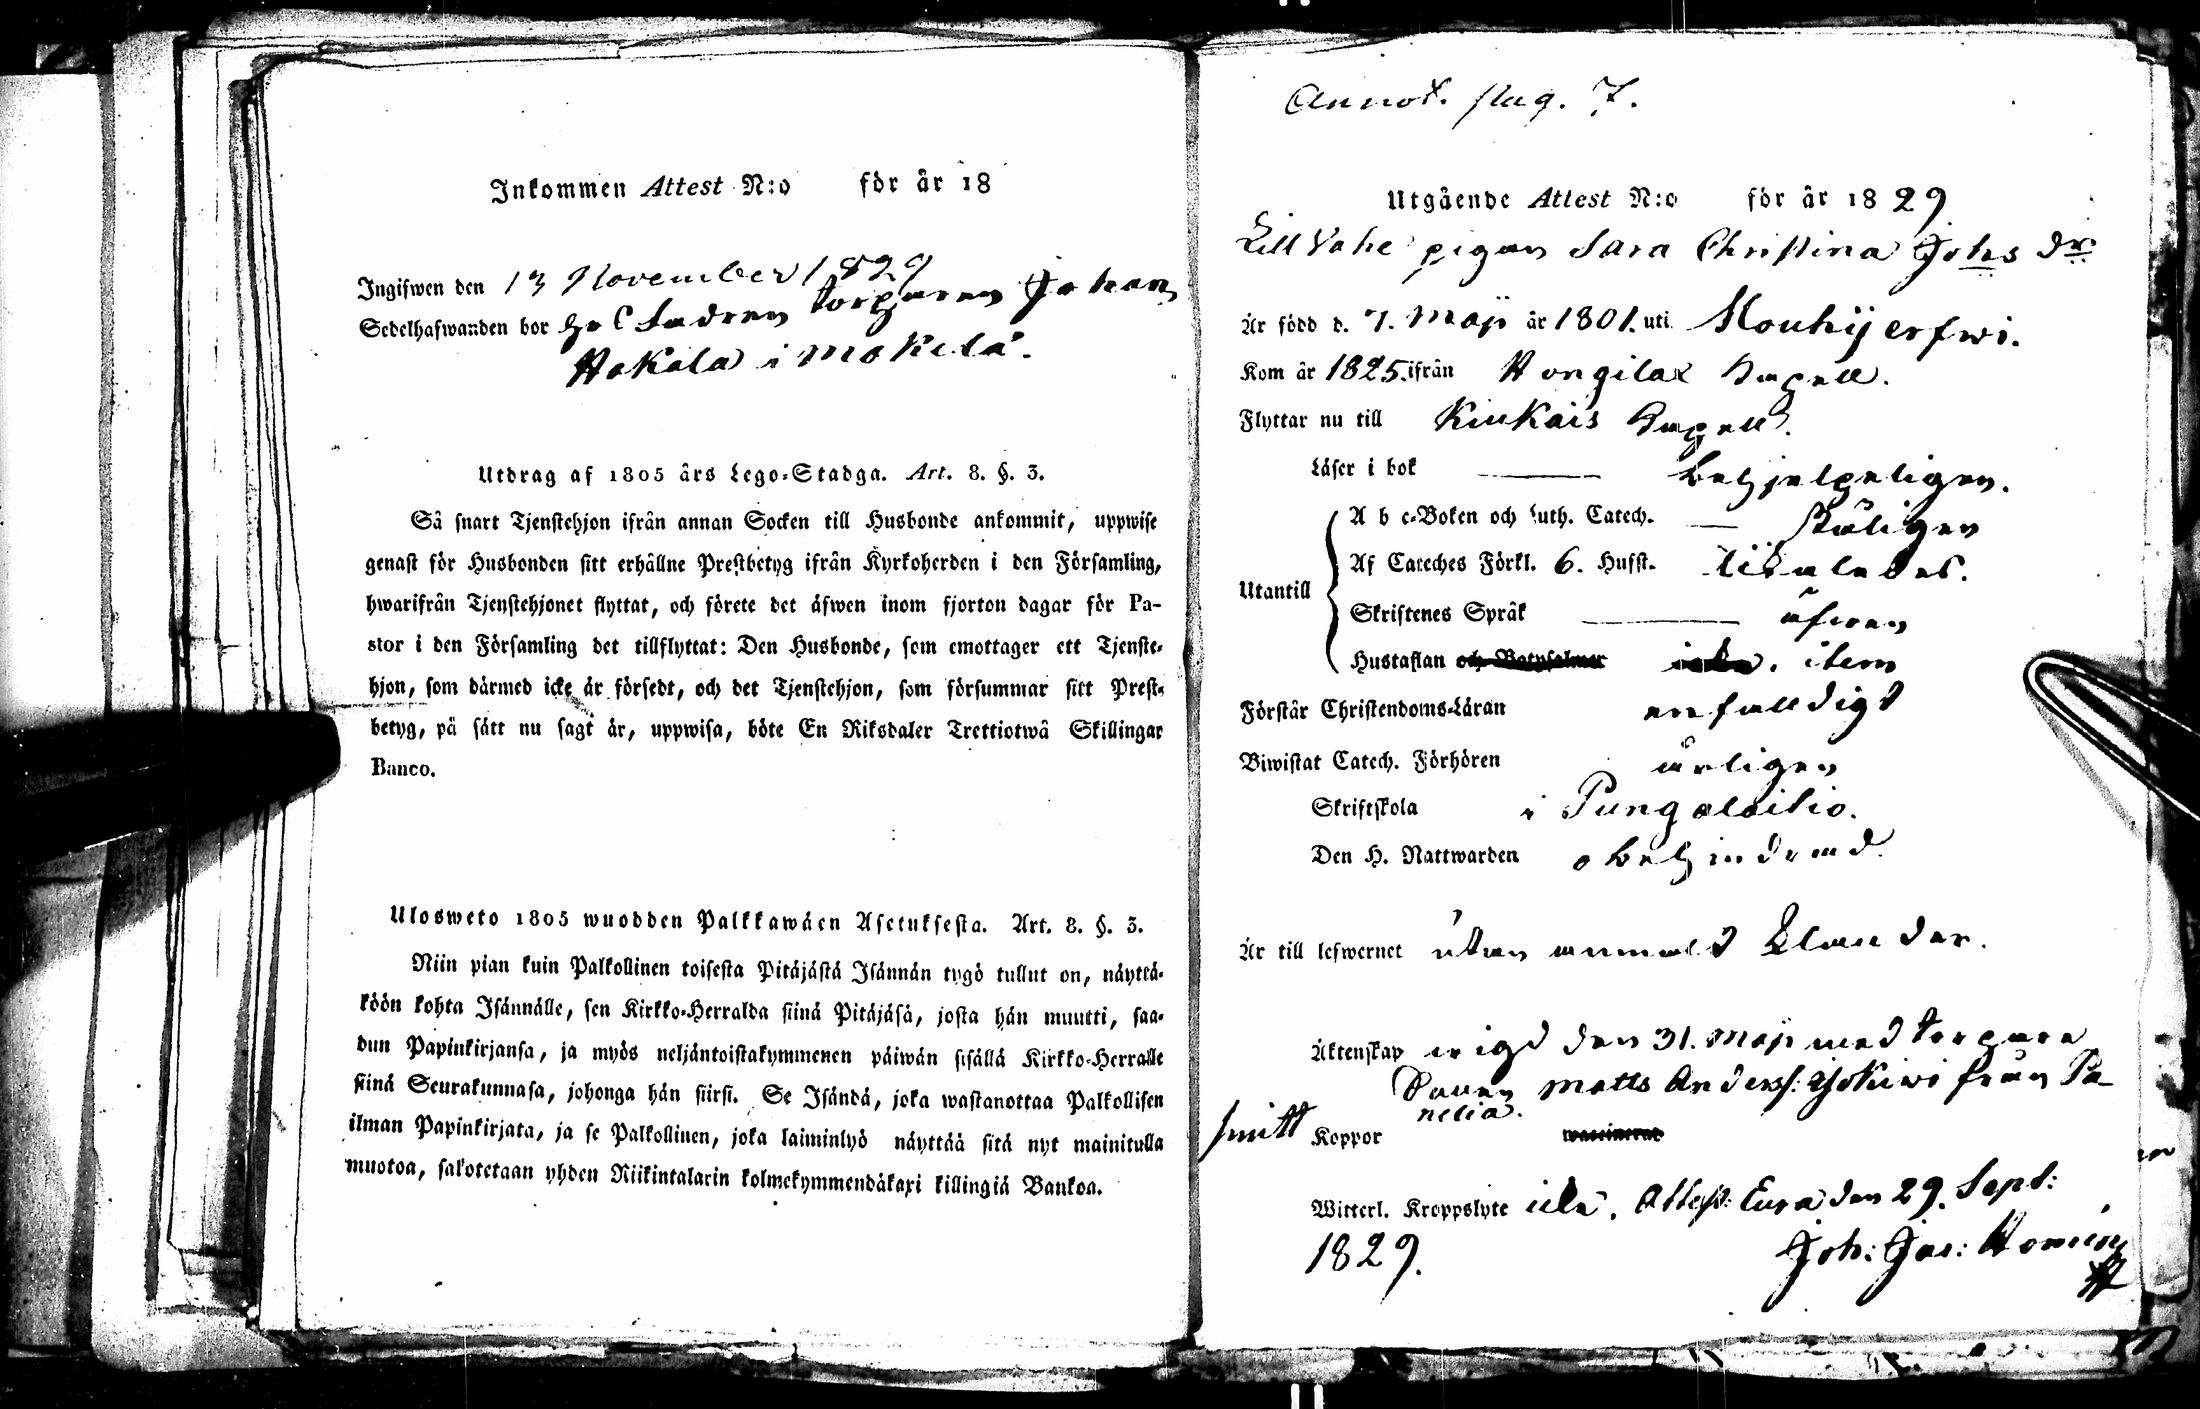 Inkommen Attest N:o för år 18
Ingifwen den 13 November 1829
Sedelhafwanden bor hos Fadren torparen Johan
Hakala i Mäkelä.
Utdrag af 1805 års Lego-Stadga. Art. 8. §. 3.
Så snart Tjenstehjon ifrån annan Socken till Husbonde ankommit, uppwise
genast för Husbonden sitt erhållne Prestbetyg ifrån Kyrkoherden i den Församling,
hwarifrån Tjenstehjonet flyttat, och förete det äfwen inom fjorton dagar för Pa-
stor i den Församling det tillflyttat: Den Husbonde, som emottager ett Tjenste-
hjon, som därmed icke är försedt, och det Tjenstehjon, som försummar sitt Prest-
betyg, på sätt nu sagt är, uppwisa, böte En Riksdaler Trettiotwå Skillingar
Banco.
Ulosweto 1805 wuodden Palkkawäen Asetuksesta. Art. 8. §. 3.
Niin pian kuin Palkollinen toisesta Pitäjästä Isännän tygö tullut on, näyttä-
köön kohta Isännälle, sen Kirkko-Herralda siinä Pitäjäsä, josta hän muutti, saa-
dun Papinkirjansa, ja myös neljäntoistakymmenen päiwän sisällä Kirkko-Herralle
siinä Seurakunnasa, johonga hän siirsi. Se Isändä, joka wastanottaa Palkollisen
ilman Papinkirjata, ja se Palkollinen, joka laiminlyö näyttää sitä nyt mainitulla
muotoa, sakotetaan yhden Riikintalarin kolmekymmendäkaxi killingiä Bankoa.
Annot. pag. 7.
Utgående Attest N:o för år 1829
Lill Vahe pigan Sara Christina Johs dr
Är född d. 7. Maji år 1801. uti Kouhijerfwi.
Kom år 1825. ifrån Hongilax Capell.
Flyttar nu till Kiukais Capell.
Läser i bok behjelpeligen.
A b c-Boken och Luth. Catech. skäligen
Af Cateches Förkl. 6. Husst. likaledes.
Utantill
Skriftenes Språk äfwen
Hustaflan och Botpsalmer item
Förstår Christendoms-Läran enfaldigt
Biwistat Catech. Förhören årligen
Skriftskola i Pungalaitio.
Den H. Nattwarden obehindrad.
Är till lefwernet utan anmäld klander.
Äktenskap wigd den 31. Maji med torpare
Sonen Matts Anders: Ajokiwi från Pa-
nelia.
Koppor haft
Witterl. Kroppslyte icke. Attest: Eura den 29. Sept:
1829.
Joh: Jac: